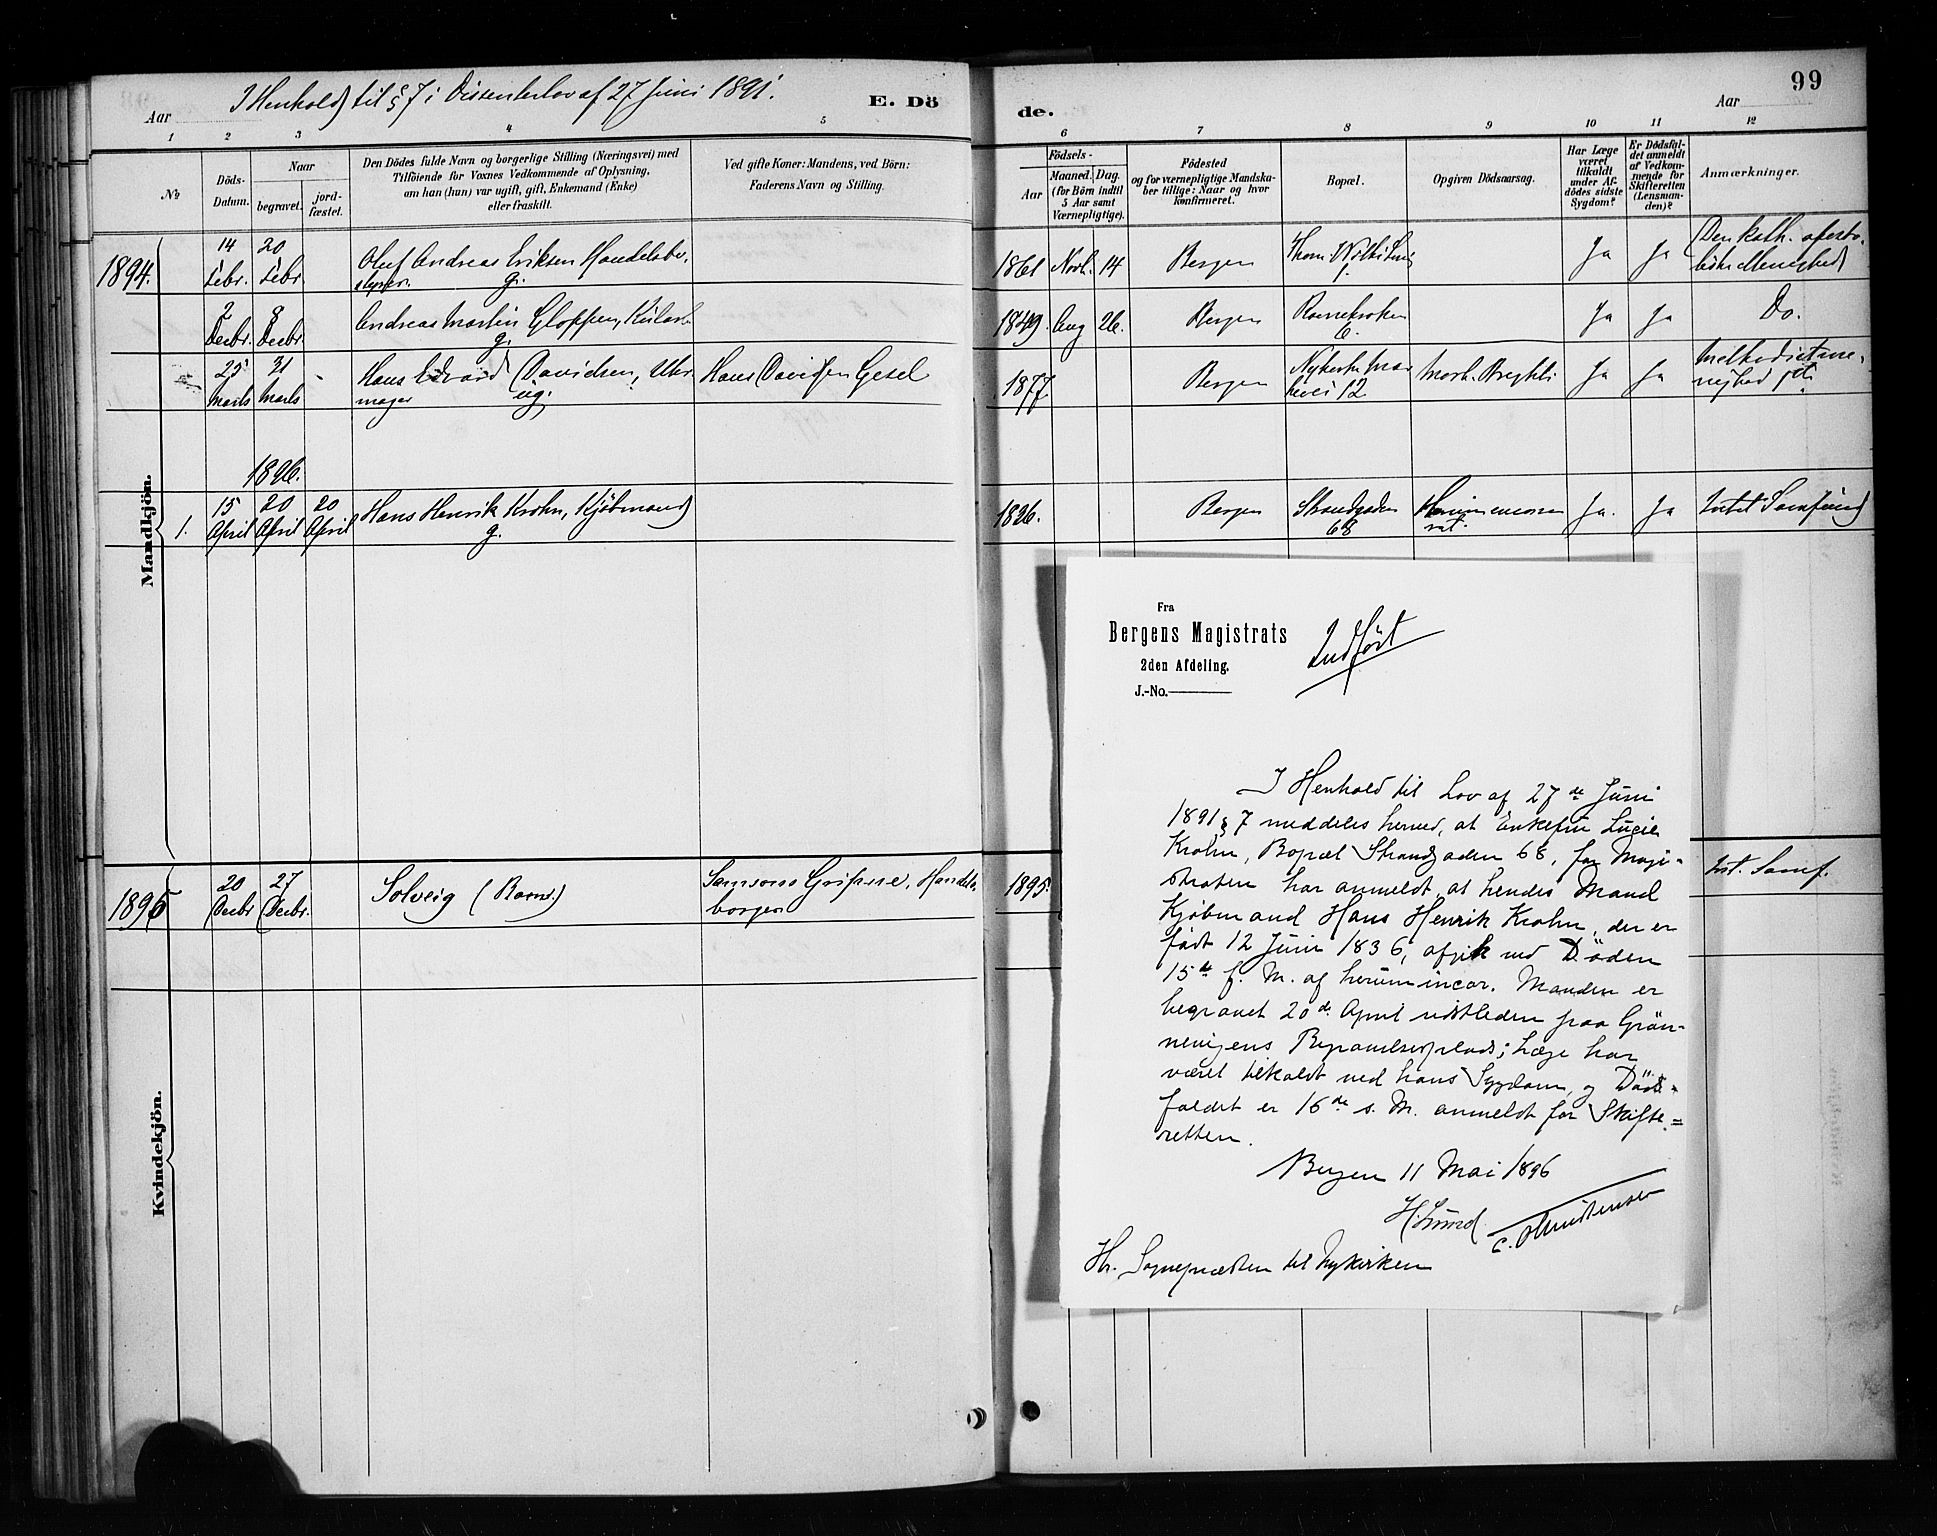 99
I Henhold til § 7 i Dissenterlov af 27 Juni 1891.
Aar
E. Dö
de.
Aar
1 2 3 4 5 6 7 8 9 10 11 12
No
Döds-Datum.
Naar
begravet.
jord-fæstet.
Den Dödes fulde Navn og borgerlige Stilling (Næringsvei) med
Tilföiende for Voxnes Vedkommende af Oplysning,
om han (hun) var ugift, gift, Enkemand (Enke)
eller fraskilt.
Ved gifte Koner: Mandens, ved Börn:
Faderens Navn og Stilling.
Födsels-
Aar
Maaned. Dag.
(for Börn indtil
5 Aar samt
Værnepligtige).
Födested
og for værnepligtige Mandska-
ber tillige: Naar og hvor
konfirmeret.
Bopæl.
Opgiven Dödsaarsag.
Har Læge
været
tilkaldt
under Af-
dödes sidste
Sygdom?
Er Dödsfal-
det anmeldt
af Vedkom-
mende for
Skifteretten
(Lensman-
den)?
Anmærkninger.
Mandkjön.
1894. 14 Febr. 20 Febr. Oluf Andreas Eriksen Handelsbe-
styrer. g. 1861 Novb. 14 Bergen Ja Ja Den kath. aposto-
liske Menighed
2 Decbr. 8 Decbr. Andreas Martin Gloppen,
g. 1849. Aug 26. Bergen Ja Ja Do.
25 Marts 31 Marts - Hans Edvard Davidsen, Uhr-
mager ug. Hans Davidsen Gesel 1877. Bergen 12 Morb. Brightii Ja Ja Methodistme-
nighed
1896.
1. 15 April 20 April 20 April Hans Henrik Krohn, Kjöbmand
g. 1826. Bergen Strandgaden
68 Ja. Ja Intet Samfund
Kvindekjön.
1895 20 Decbr 27 Decbr. Solveig (Barn) Handels-
borger 1895. Int. Samf.
Fra
Bergens Magistrats
2den Afdeling.
J.-No.
Indført
I Henhold til Lov af 27de Juni
1891 § 7 meddeles herved, at Enkefru Lucie
Krohn, Bopæl Strandgaden 68, for Magi-
straten har anmeldt, at hendes Mand
Kjøbmand Hans Henrik Krohn, der er
født 12 Juni 1836, afgik ved Døden
15de f. M. af Manden er
begravet 20de April sidstleden paa Grøn-
nevigens Begravelsesplads; Læge har
været tilkaldt ved hans Sygdom, og Døds-
faldet er 16de s. M. anmeldt for Skifte=
retten.
Bergen 11 Mai 1896
H. Lund
C. Christensen
Hr. Sognepræsten til Nykirken